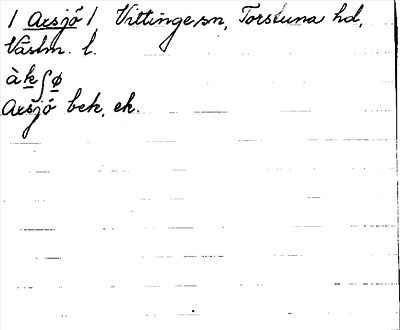 / Axsjö / Vittinge sn, Torstuna hd,
Västm. l.
àkʃø
Axsjö bek, ek.